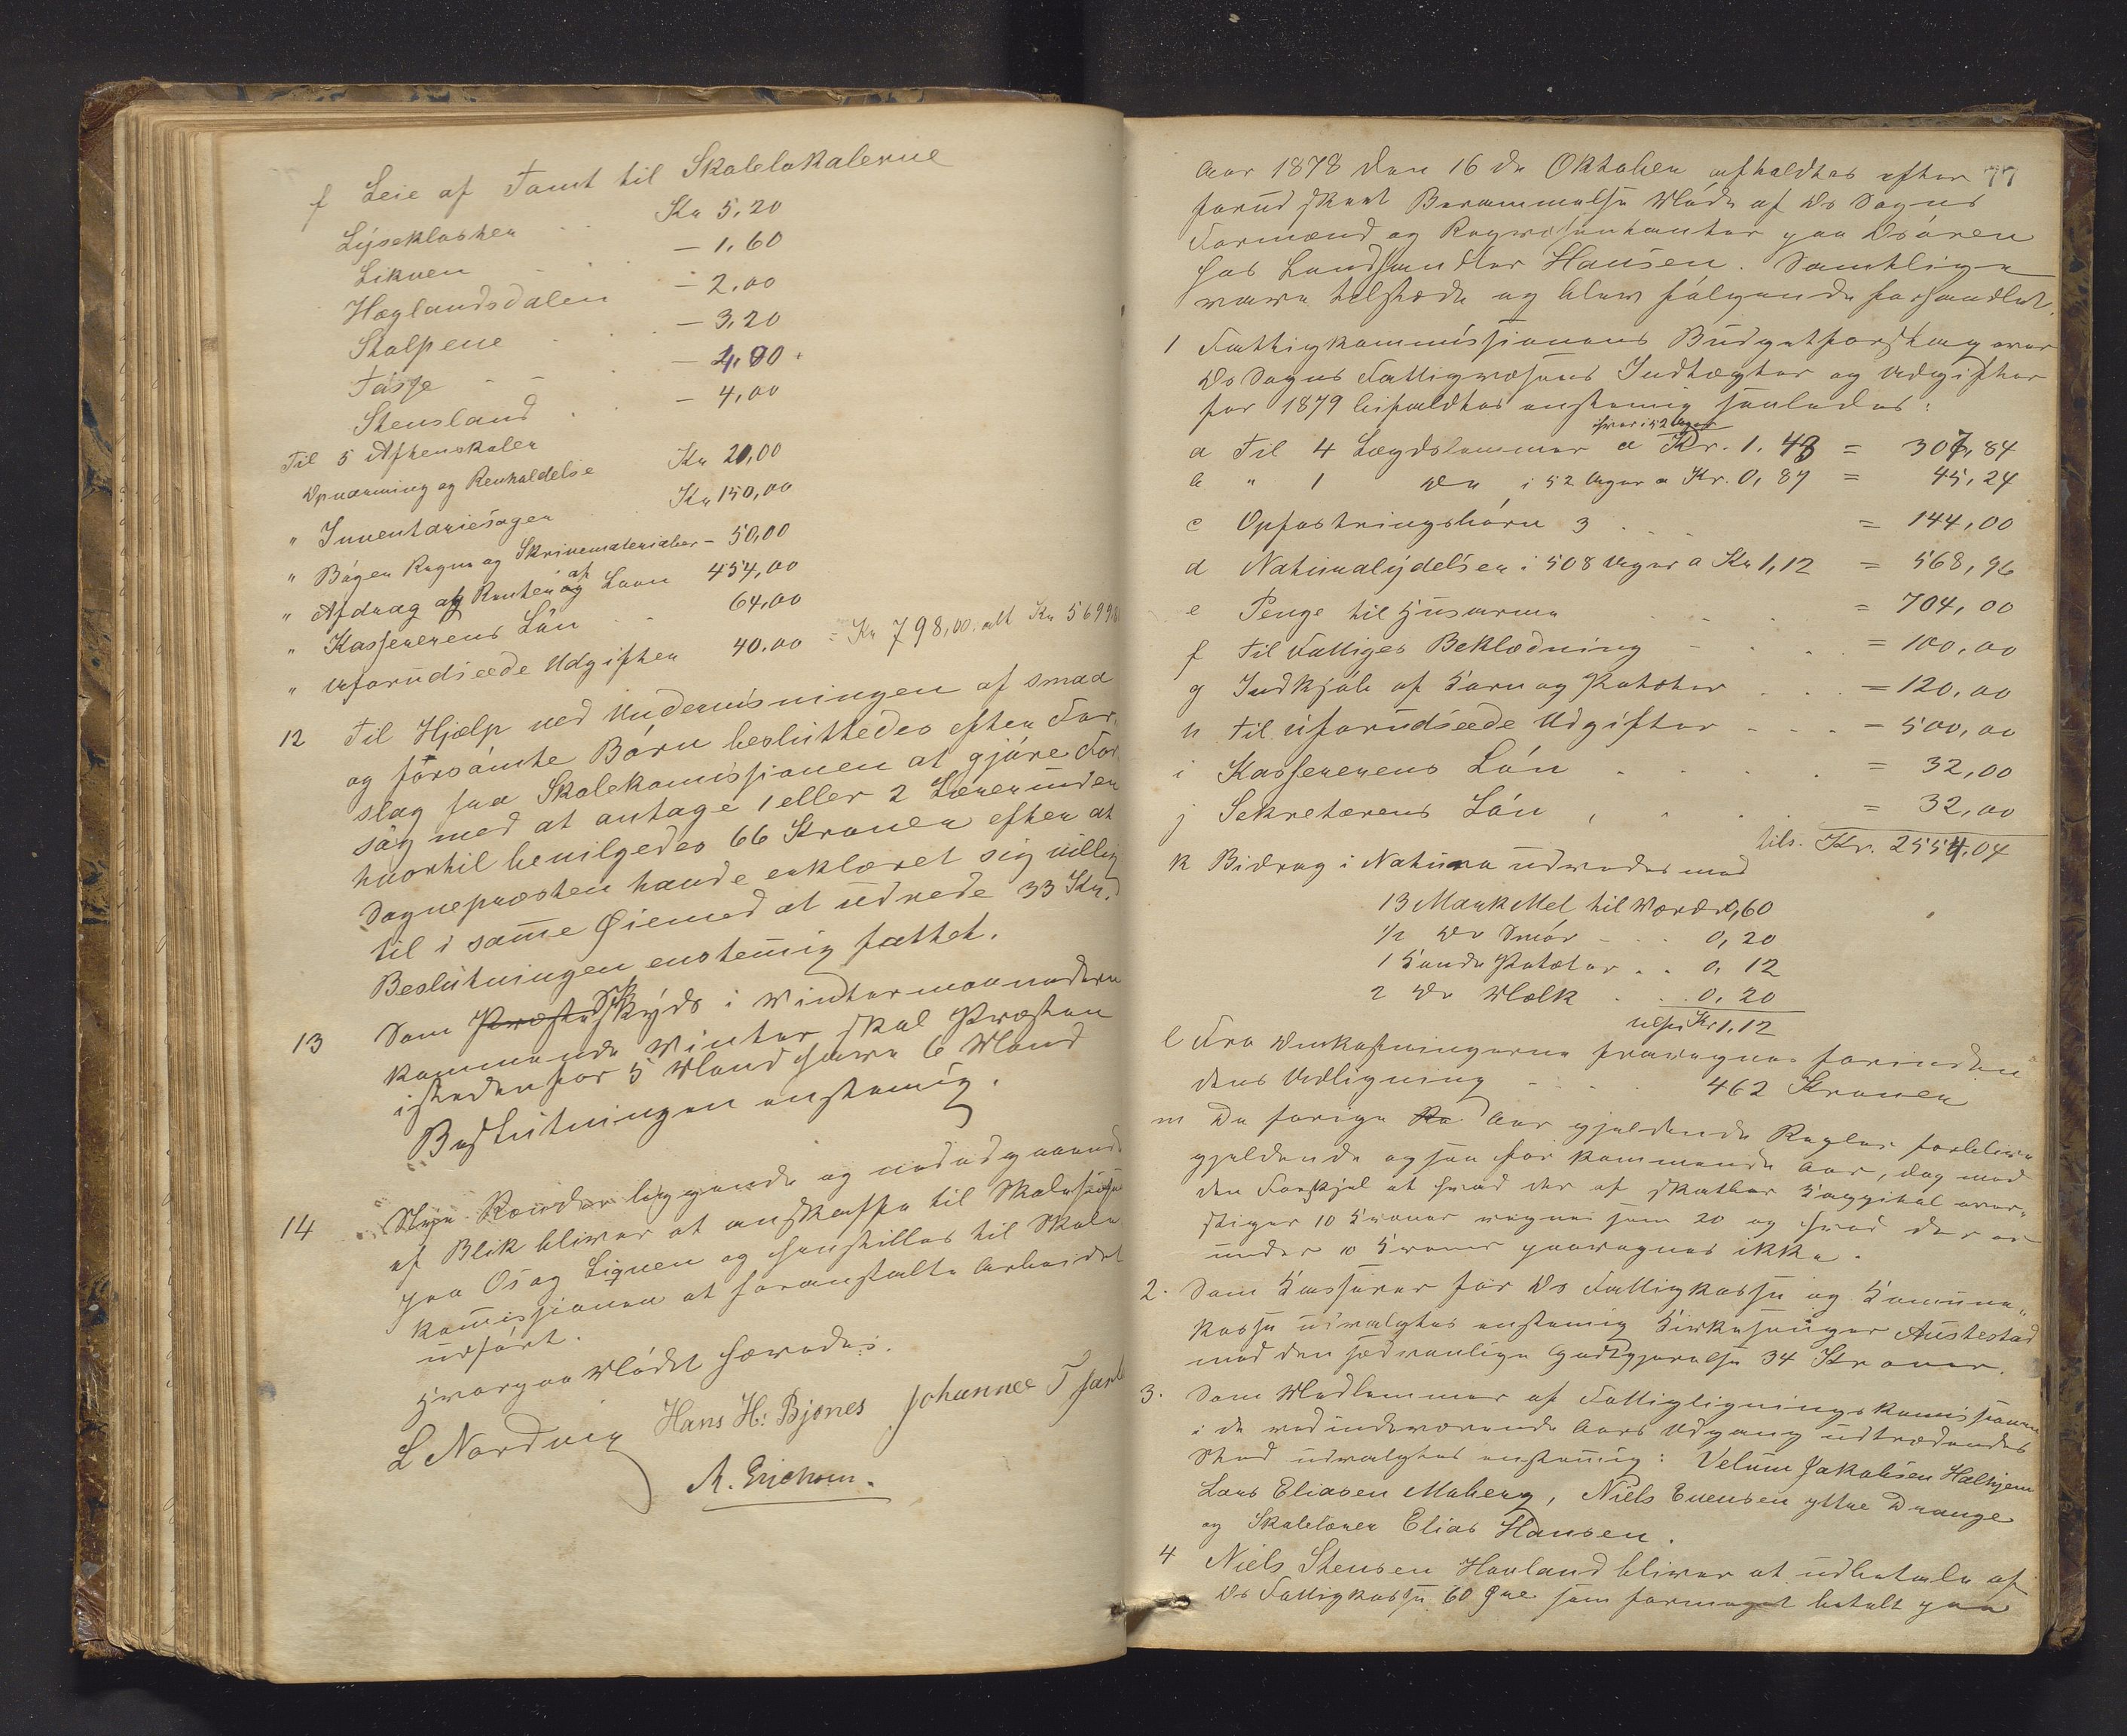 f Leie af Tomt til Skolelokalerne
Lysekloster . . Kr 5,20
Liknen — 1,60
Hæglandsdalen — 2,00
Skolpene — 3,20
Tøsse — 4,00
Stensland — 4,00
Til 5 Aftenskoler
Opvarming og Renholdelse Kr 20,00
" Inventariesager Kr 150,00
" Bøger Regne og Skrivematerialier — 50,00
" Afdrag og Renter af Laan 454,00
" Kassererens Løn 64,00
" Uforudseede Udgifter 40.00 = Kr 798,00. alt Kr 5699
12 Til Hjælp ved Undervisningen af smaa
og forsømte Børn besluttedes efter For-
slag fra Skolekomissionen at gjøre For
søg med at antage 1 eller 2 Lærerinder
hvortil bevilgedes 66 Kroner efter at
Sognepræsten havde erklæret sig villig
til i samme Øiemed at udrede 33 Kr.
Beslutningen enstemig fattet.
13 Som Skyds i Vintermaanederne
kommende Vinter skal Præsten
istedenfor 5 Mand have 6 Mand
Beslutningen enstemig.
14 Nye Render liggende og nedadgaaende
af Blik bliver at anskaffe til Skolehuset
paa Os og Liqnen og henstilles til Skole
komissionen at foranstalte Arbeidet
udført.
Hvorpaa Mødet hævedes.
L Nordvig Hans H: Bjønes Johannes T
A. Erichsen.
77
Aar 1878 den 16de Oktober afholdtes efter
forud skeet Berammelse Møde af Os Sogns
Formænd og Repræsentanter paa Osøren
hos Landhandler Hansen. Samtlige
vare tilstede og blev følgende forhandlet.
1 Fattigkommissionens Budgetforslag over
Os Sogns Fattigvæsens Indtægter og Udgifter
for 1879 bifaldtes enstemig saaledes:
hver i 52 Uger
a Til 4 Lægdslemmer a Kr. 1.48 = 307,84
b " 1 do i 52 Uger a Kr. 0,87 = 45,24
c Opfostringsbørn 3 . = 144,00
d Naturalydelser i 508 Uger a Kr 1,12 = 568,96
e Penge til Husarme = 704,00
f Til Fattiges Beklædning = 100,00
g Indkjøb af Korn og Poteter = 120,00
h Til uforudseede Udgifter = 500,00
i Kassererens Løn = 32,00
j Sekretærens Løn = 32,00
tils. Kr. 2554,04
k Bidrag i Natura udredes med
13 Mark Mel til Værd 0,60
1/2 do Smør 0,20
1 Kande Poteter 0,12
2 do Melk 0,20
tils. Kr 1,12
l Fra Udkastningerne fraregnes forinden
dens Udligning 462 Kroner
m De forrige Aar gjeldende Regler forblive
gjeldende ogsaa for kommende Aar, dog med
den Forskjel at hvad der af skatbar Kappital over-
stiger 10 Kroner regnes som 20 og hvad der er
under 10 Kroner paaregnes ikke.
2. Som Kasserer for Os Fattigkasse og Komune-
kasse udvalgtes enstemig Kirkesanger Austestad
med den sædvanlige Godtgjørelse 34 Kroner.
3. Som Medlemmer af Fattigligningskomissionen
i de ved indeværende Aars Udgang udtrædendes
Sted udvalgtes enstemig: Velum Jakobsen Halhjem
Lars Eliasen Moberg, Niels Evensen yttre Drange
og Skolelærer Elias Hansen.
4 Niels Stensen Hauland bliver at udbetale af
Os Fattigkasse 60 Øre som formeget betalt paa